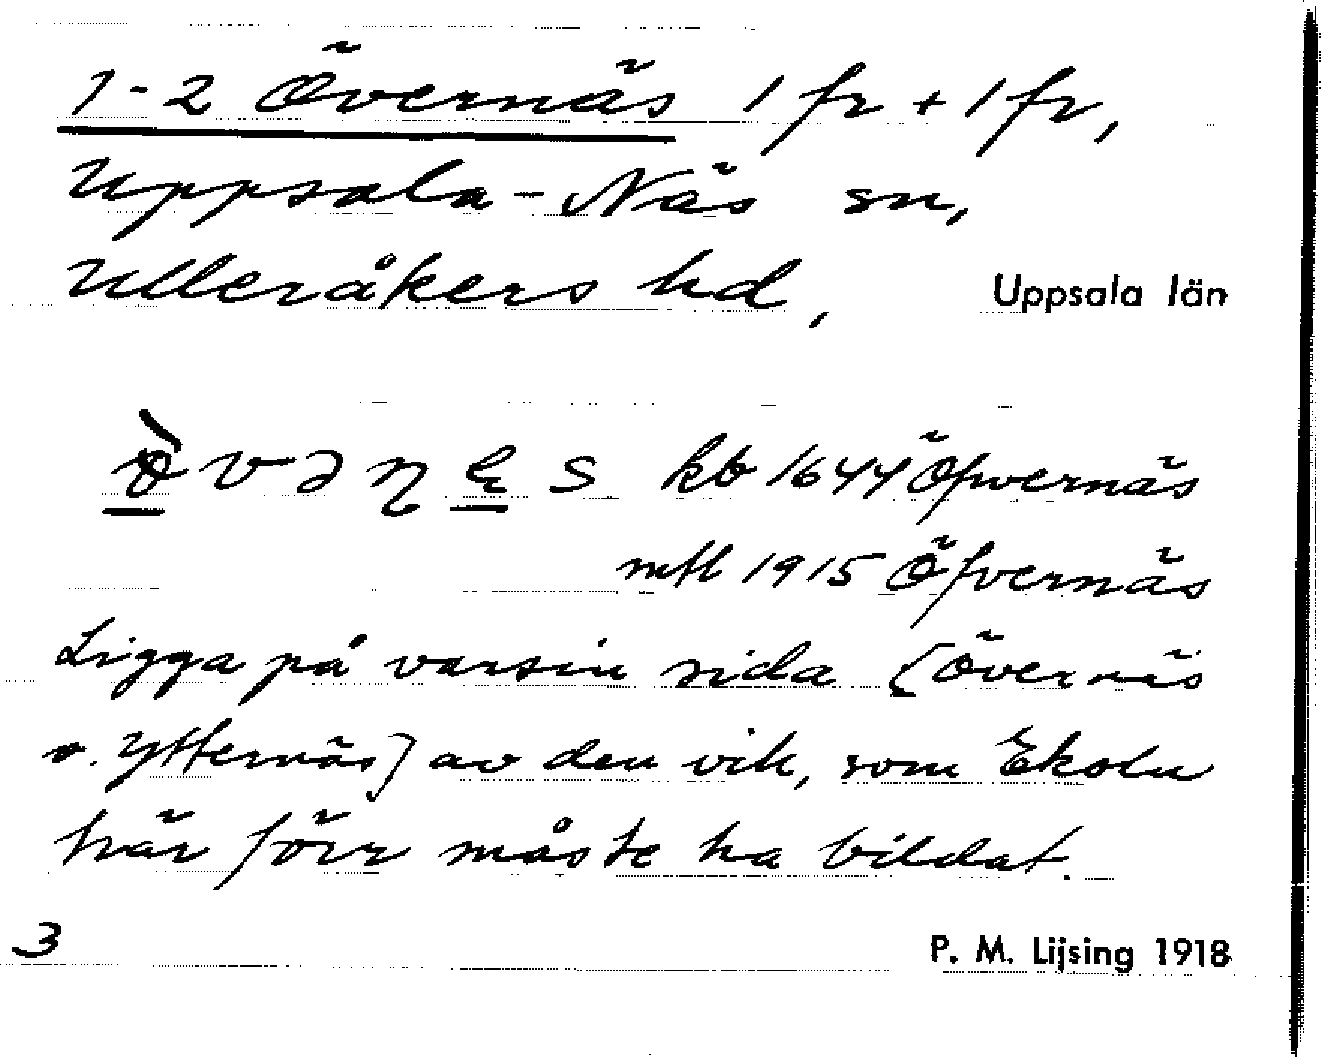 1-2 Övernäs 1 fr + 1 fr,
Uppsala-Näs sn,
Ulleråkers hd, Uppsala län
kb 1644 Öfwernäs
mtl 1915 Öfvernäs
Ligga på varsin sida (Övernäs
o. Ytternäs) av den vik, som Ekoln
här förr måste ha bildat.
3 P. M. Lijsing 1918